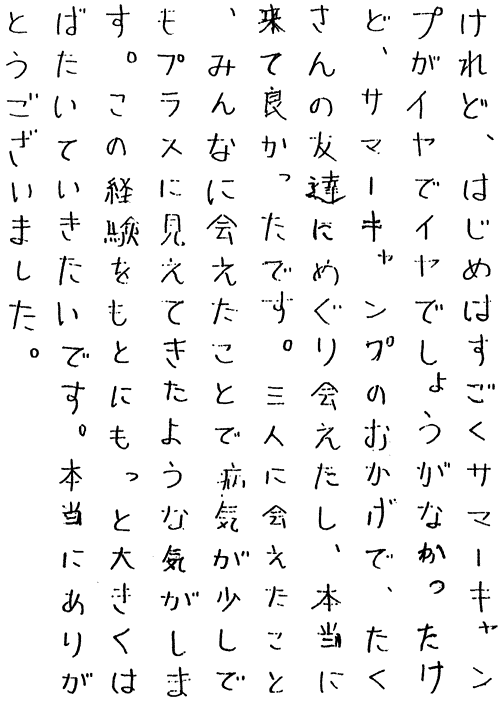 けれど、はじめはすごくサマーキャン
プがイヤでイヤでしょうがなかったけ
ど、サマーキャンプのおかげで、たく
さんの友達にめぐり会えたし、本当に
来て良かったです。三人に会えたこと
、みんなに会えたことで病気が少しで
もプラスに見えてきたような気がしま
す。この経験をもとにもっと大きくは
ばたいていきたいです。本当にありが
とうございました。